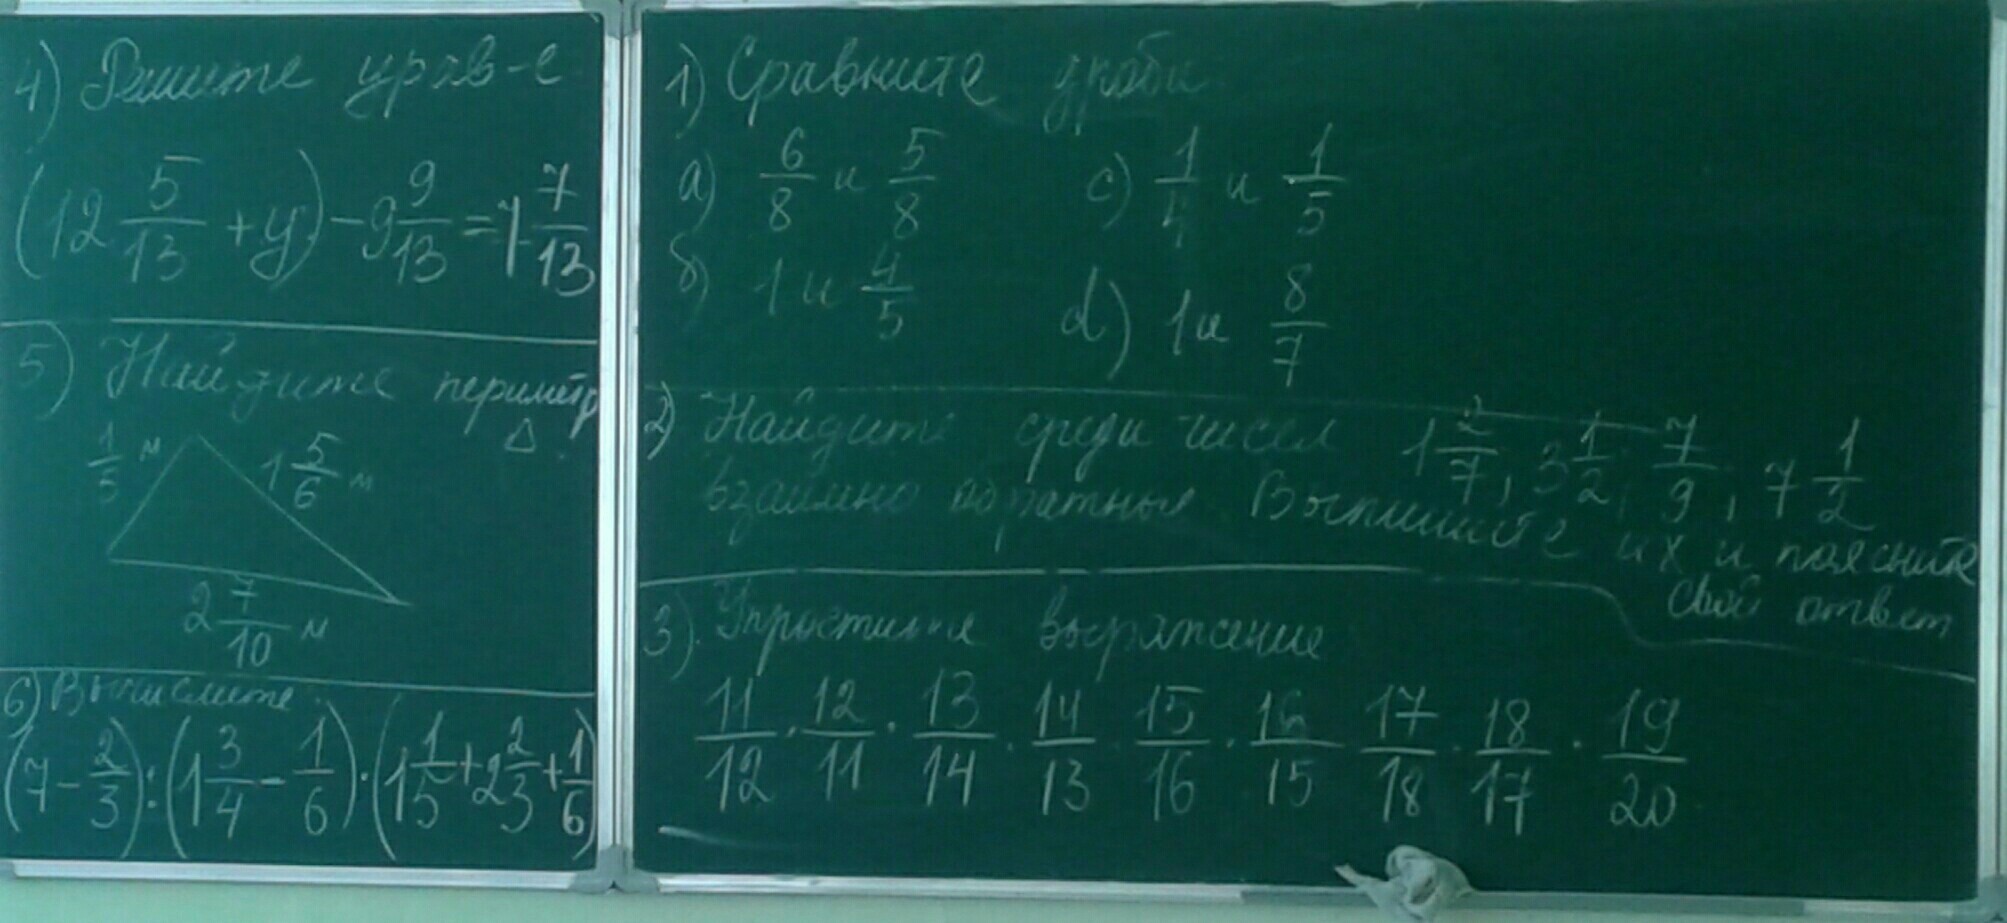 4) Решите урав-е
(12 5/13 + y) - 9 9/13 = 7 7/13
5) Найдите периметр
Δ
1/5 м
1 5/6 м
2 7/10 м
6) Вычислите:
(7 - 2/3) : (1 3/4 - 1/6) · (1 1/5 + 2 2/3 + 1/6)
1) Сравните дроби
а) 6/8 и 5/8 c) 1/4 и 1/5
б) 1 и 4/5 d) 1 и 8/7
2) Найдите среди чисел 1 2/7, 3 1/2, 7/9, 7 1/2
взаимно обратные. Выпишите их и поясните
свой ответ
3). Упростите выражение
11/12 · 12/11 · 13/14 · 14/13 · 15/16 · 16/15 · 17/18 · 18/17 · 19/20